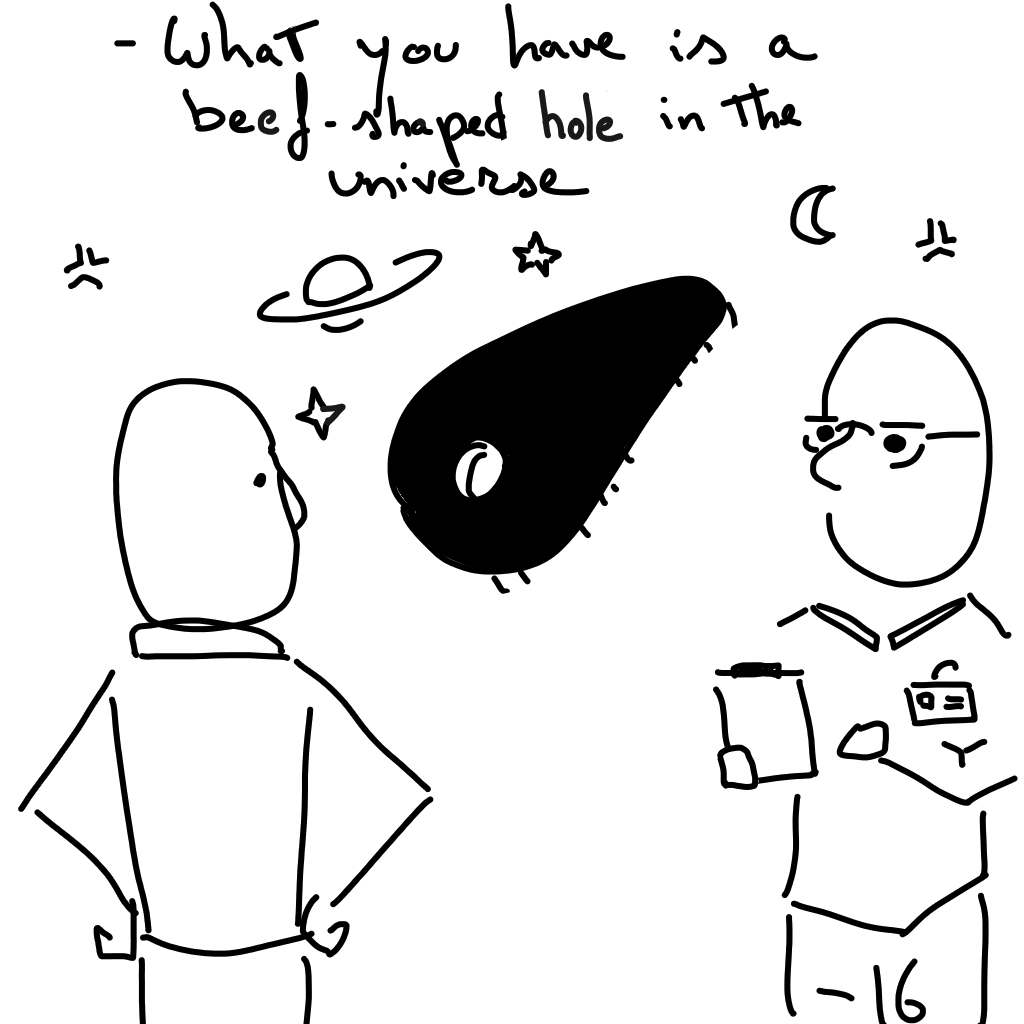 - What you have is a
beef-shaped hole in the
universe
-16